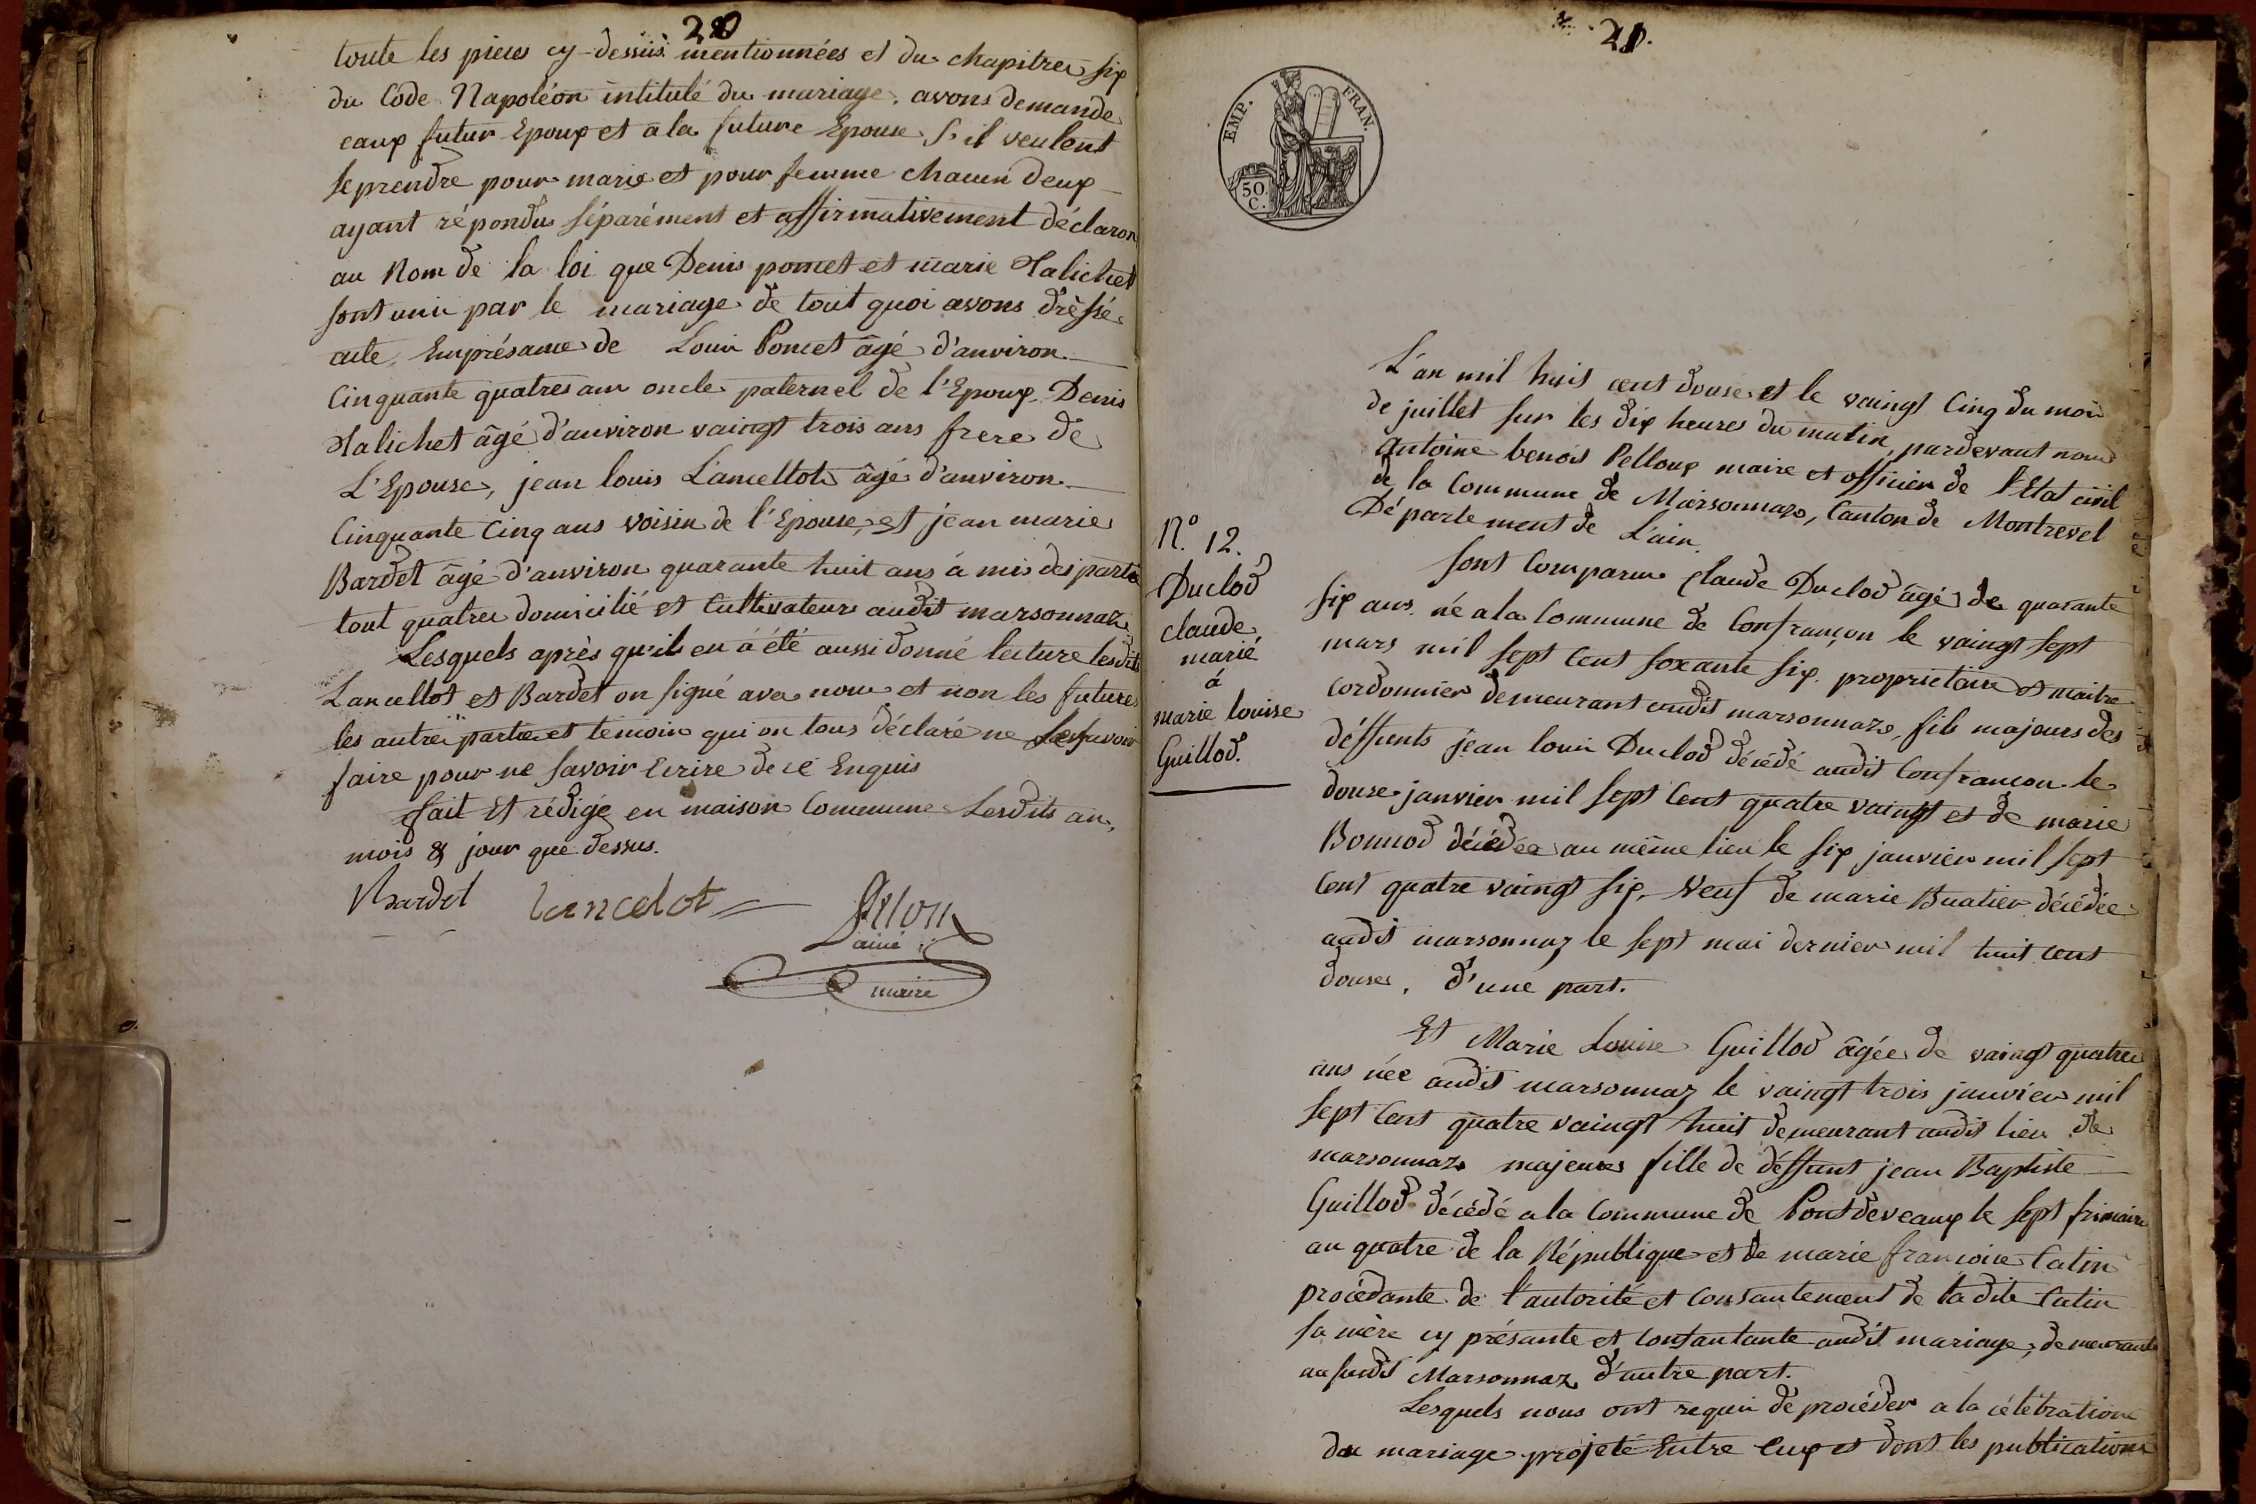 20
toute les pieces cy-dessus mentionnées et du chapitre six
du Code Napoléon intitulé du mariage, avons demande
eaux futur Epoux et a la future Epouse s'il veulent
se prendre pour marie et pour femme chacun deux
ayant répondu séparément et affirmativement déclarons
au Nom de la loi que Denis poncet et marie Halichet
sont unis par le mariage de tout quoi avons drèssé
acte, Enprésance de Louis Poncet âgé d'anviron
Cinquante quatres ans oncle paternel de l'Epoux, Denis
Halichet âgé d'anviron vaingt trois ans frere de
L'Epouse, jean louis Lancellot âgé d'anviron
Cinquante Cinq ans voisin de l'Epouse, et jean marie
Bardet âgé d'anviron quarante huit ans à mis des partie
tout quatre domicilié et Cultivateur audit marsonnaz
Lesquels après qu'ils en a été aussi donné lecture lesdits
Lancellot et Bardet on signé avec nous et non les futures
les autres partie et temoins qui on tous déclaré ne savoir
faire pour ne savoir Ecrire de ce Enquis
fait Et rédigé en maison Commune Lesdits an,
mois & jour que dessus.
Bardet Lancelot
ainé
maire
21.
EMP. FRAN.
50 C.
L'an mil huit cent douse et le vaingt Cinq du mois
de juillet sur les dix heures du matin, pardevant nous
Antoine benoit Pelloux maire et officier de l'Etat civil
de la Commune de Marsonnaz, Canton de Montrevel
Département de L'ain.
N.º 12.
Duclod
claude
marié
à
marie louise
Guillod.
sont Comparus Claude Duclod âgé de quarante
six ans né a la Commune de Confrançon le vaingt sept
mars mil sept Cent soxante six proprietaire et maitre
Cordonnier demeurant audit marsonnaz, fils majeurs des
déffunts jean louis Duclod décédé audit Confrancon le
douse janvier mil sept Cent quatre vaingt et de marie
Bonnod décédée au même lieu le six janvier mil sept
Cent quatre vaingt six, Veuf de marie Buatier décédée
audit marsonnaz le sept mai dernier mil huit Cent
douse, d'une part.
Et Marie Louise Guillod âgée de vaingt quatre
ans née audit marsonnaz le vaingt trois janvier mil
sept Cent quatre vaingt huit demeurant audit lieu de
marsonnaz majeure fille de déffunt jean Baptiste
Guillod décédé a la Commune de Pontdeveaux le sept frimaire
an quatre de la République et de marie francoise Catin
procédante de l'autorité et Consantement de ladite Catin
sa mère cy présante et Consantante audit mariage, demeurante
au susdit Marsonnaz d'autre part.
Lesquels nous ont requis de procéder a la célébration
du mariage projeté Entre Eux et dont les publications